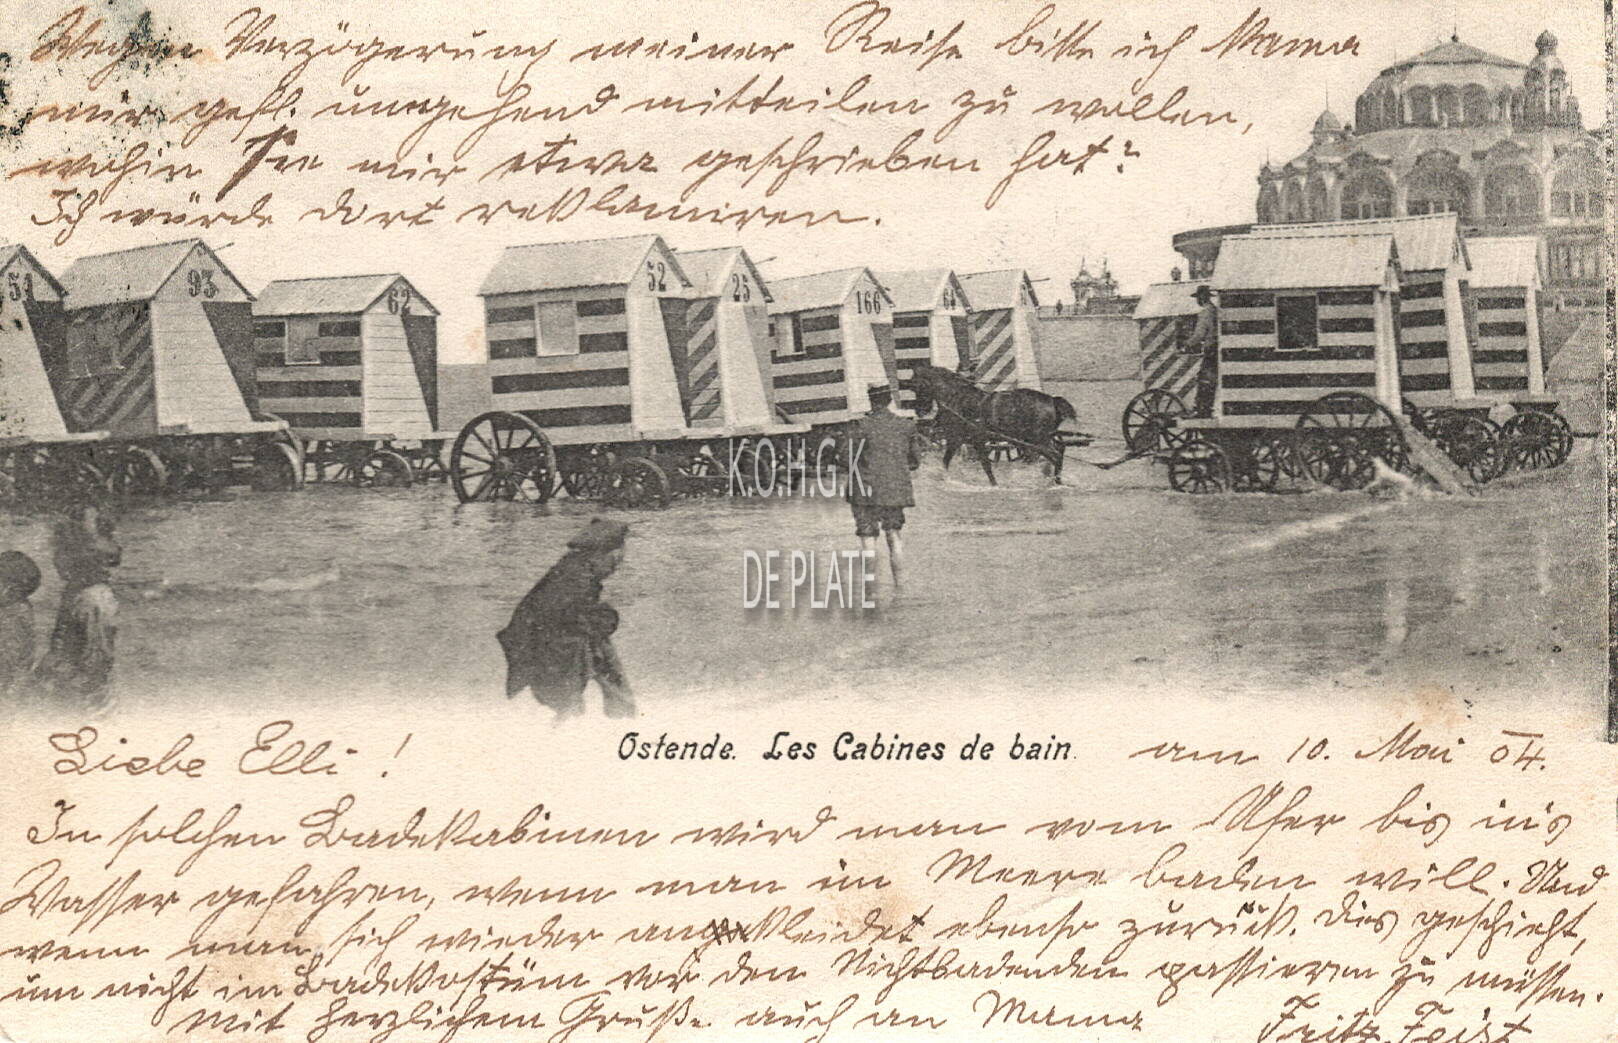 Wegen Verzögerung meiner Reise bitte ich Mama
mir gefl. umgehend mitteilen zu wollen,
wohin Sie mir etwa geschrieben hat?
Ich würde dort reklamiren.
51
93
62
52
25
166
64
K.O.H.G.K.
DE PLATE
Liebe Elli!
Ostende. Les Cabines de bain.
am 10. Mai 04.
In solchen Badekabinen wird man vom Ufer bis in's
Wasser gefahren, wenn man im Meere baden will. Und
wenn man sich wieder ankleidet ebenso zurück. Dies geschieht,
um nicht im Badekostüm vor den Nichtbadenden passieren zu müssen.
Mit herzlichem Gruß auch an Mama
Fritz Feist